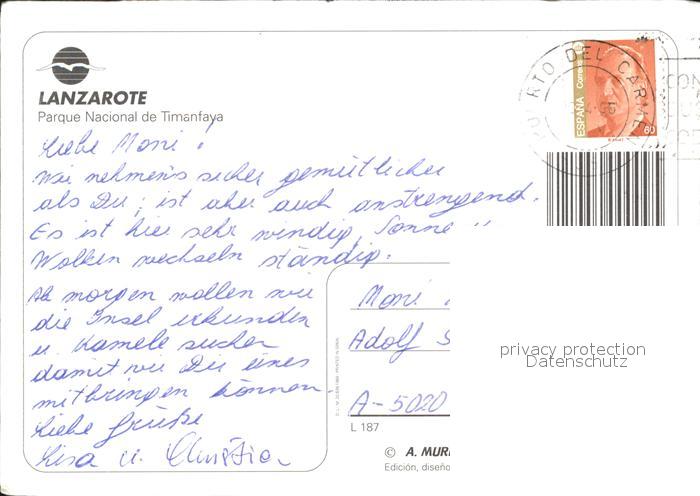 LANZAROTE
Parque Nacional de Timanfaya
PUERTO DEL CARMEN
ESPAÑA Correos
60
CON
Liebe Moni!
Wir nehmen's sicher gemütlicher
als Du, ist aber auch anstrengend.
Es ist hier sehr windig, Sonne u.
Wolken wechseln ständig.
Ab morgen wollen wir
die Insel erkunden
u. Kamele suchen
damit wir Dir eines
mitbringen können.
Liebe Grüße
Lisa u. Christian
Moni
Adolf S
A-5020
L 187
© A. MUR
Edición, diseño
privacy protection
Datenschutz